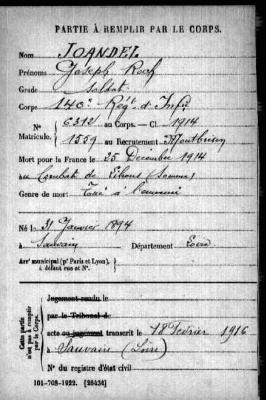 PARTIE À REMPLIR PAR LE CORPS.
Nom JOANDEL
Prénoms Joseph
Grade Soldat
Corps 140e Régt d'Infie
N° 6312 au Corps. — Cl. 1914
Matricule. 1559 au Recrutement Montbrison
Mort pour la France le 25 Décembre 1914
au combats de Lihons (Somme)
Genre de mort Tué à l'ennemi
Né le 31 Janvier 1894
à Sauvain Département Loire
Arrt municipal (pr Paris et Lyon),
à défaut rue et N°.
Cette partie
n'est pas à remplir
par le Corps.
Jugement rendu le
par le Tribunal de
acte ou jugement transcrit le 18 Février 1916
à Sauvain (Loire)
N° du registre d'état civil
101-708-1922. [26434]